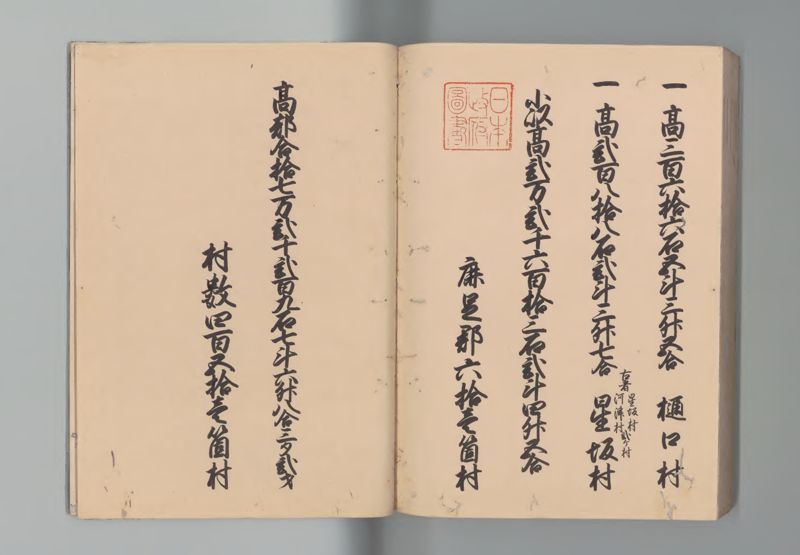 一 高三百六拾六石五斗三升五合 樋口村
一 高弐百八拾八石弐斗三升七合 星坂村
古者星坂村
河海村弐ケ村
小以高弐万弐千六百拾三石弐斗四升五合
麻足郡六拾壱箇村
日本
政府
圖書
高都合拾七万弐千弐百九石七斗六升八合三夕弐才
村数四百五拾壱箇村